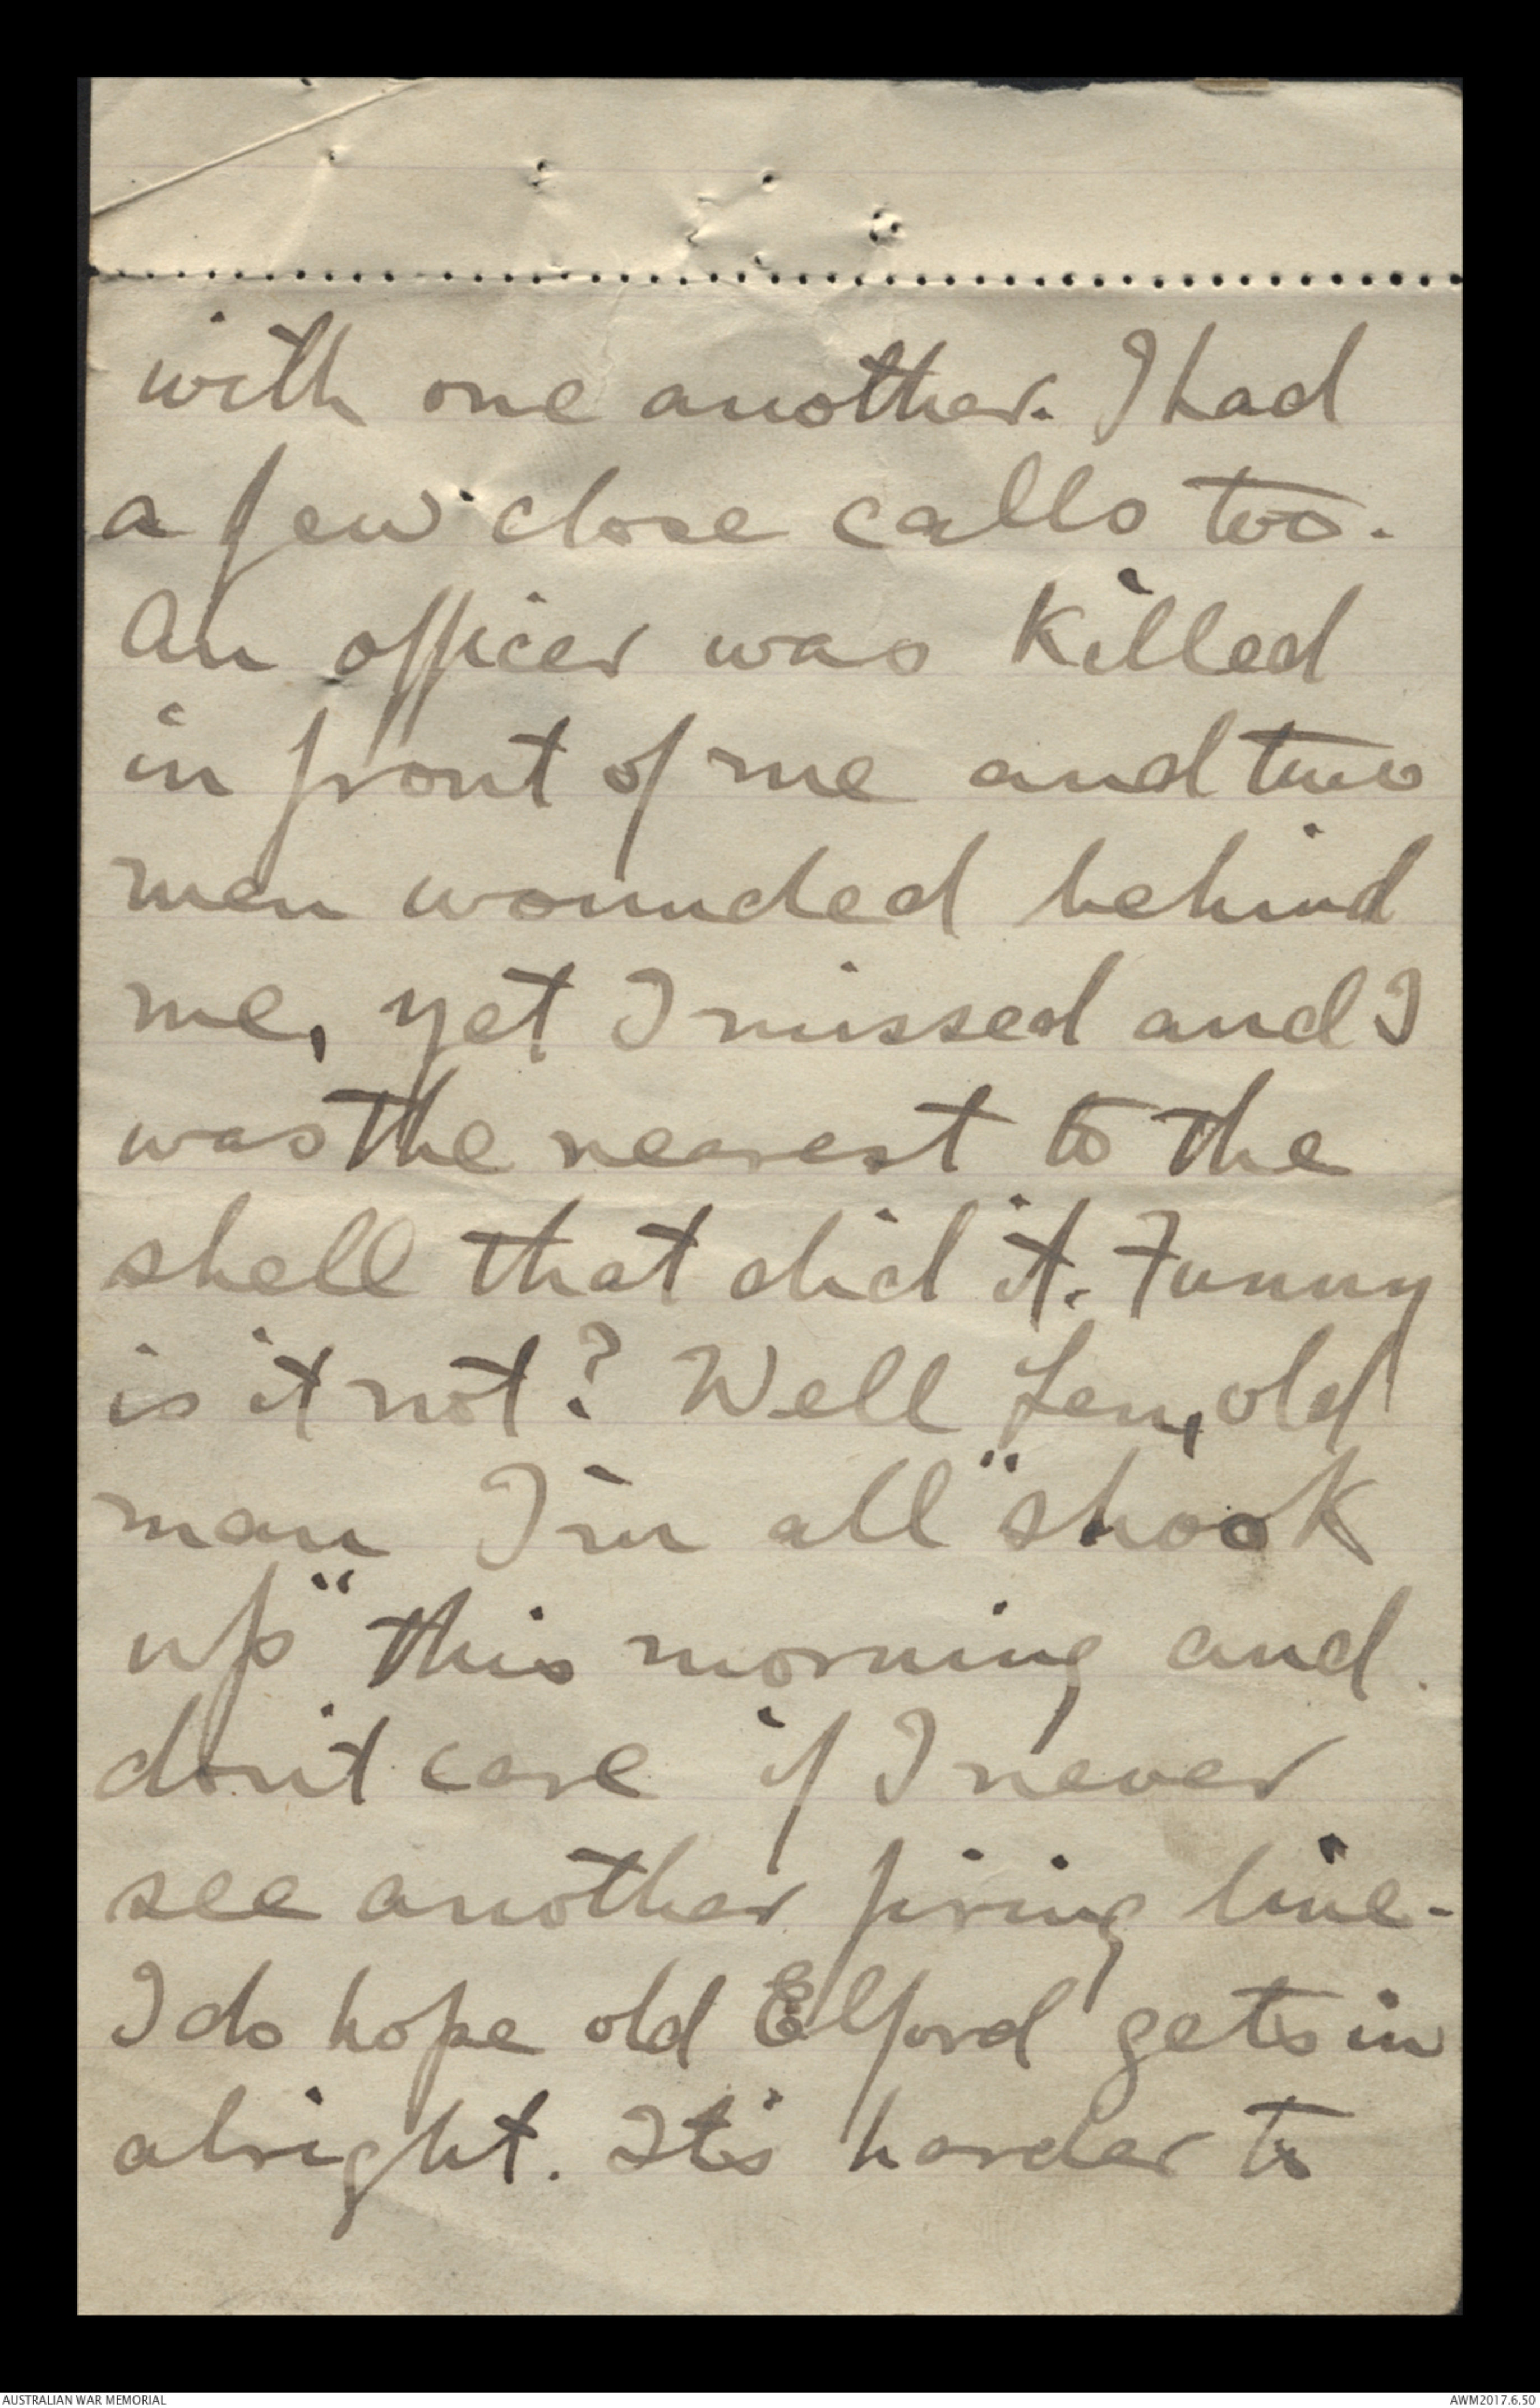 with one another. I had
a few close calls too.
An officer was killed
in front of me and two
men wounded behind
me, yet I missed and I
was the nearest to the
shell that did it. Funny
is it not? Well Len, old
man I'm all "shook
up" this morning and
don't care if I never
see another firing line -
I do hope old Elford gets in
alright. It's harder to
AUSTRALIAN WAR MEMORIAL
AWM2017.6.50